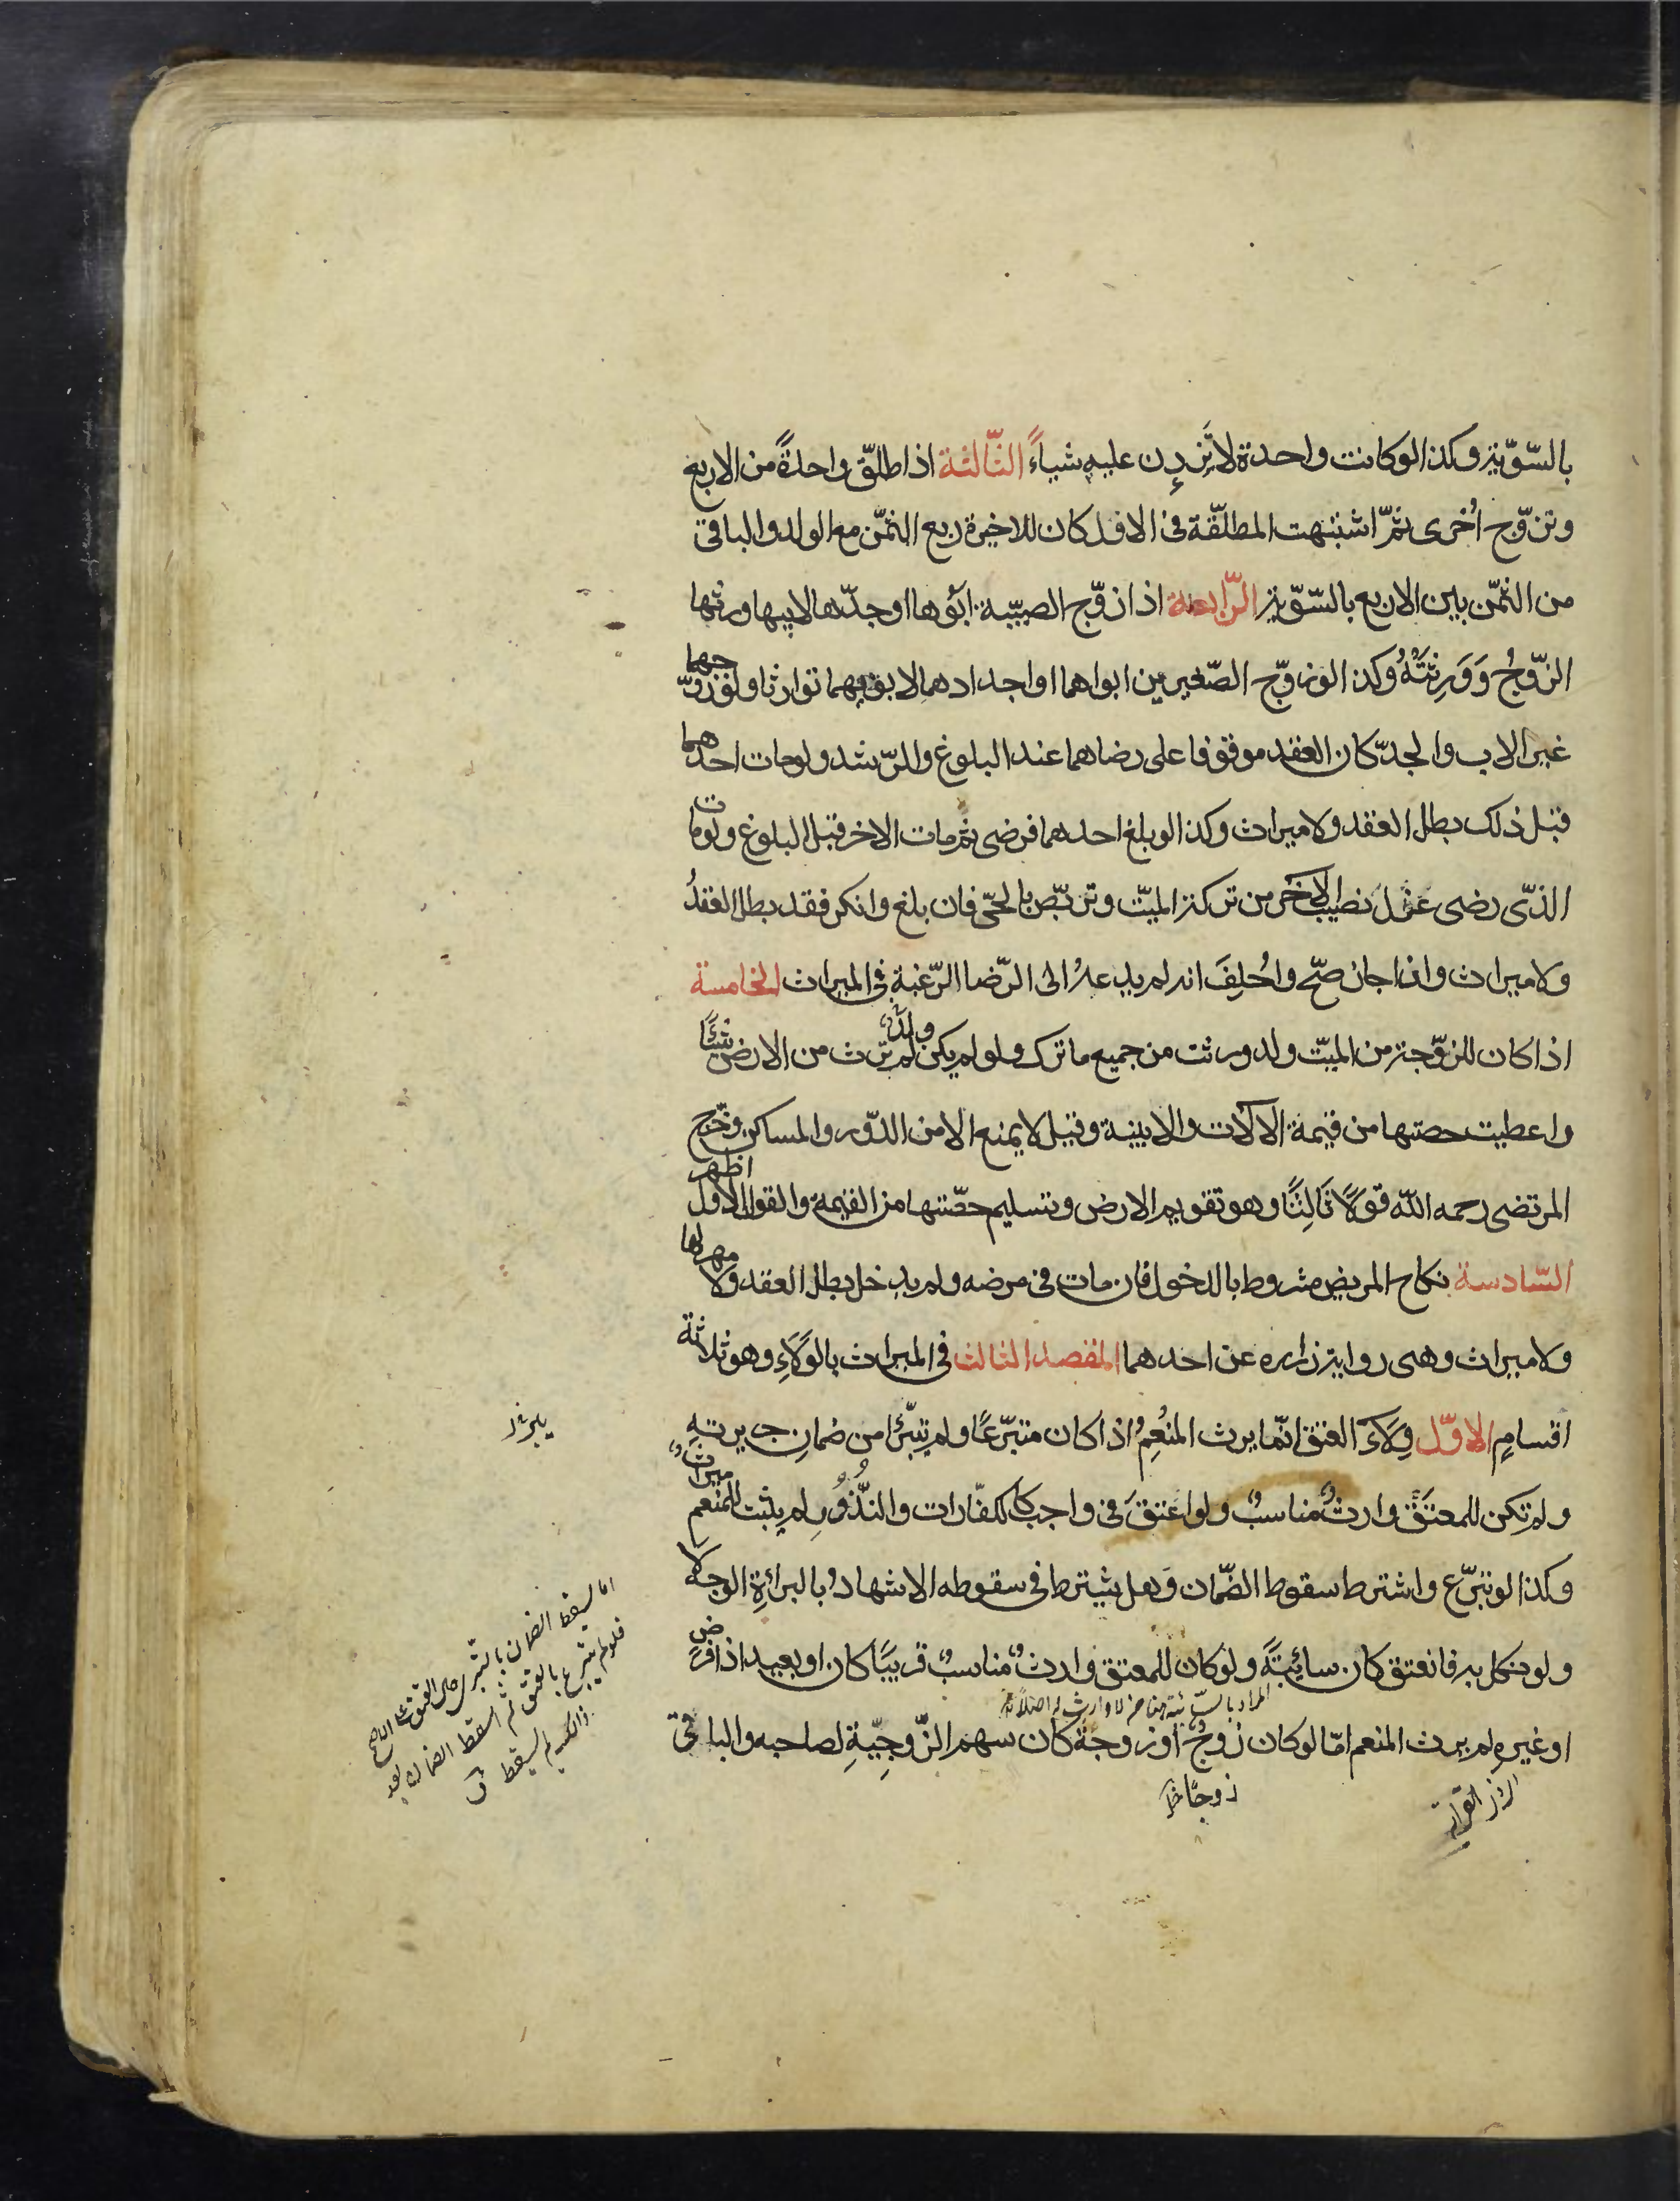 بالسّويّة وكذا لو كانت واحدة لا تَزِدن عليه شيئاً الثّالثة اذا طلّق واحدةً من الاربع
وتزوّج اُخرى ثمّ اشتبهت المطلّقة فى الاول كان للاخيرة ربع الثمّن مع الولد والباقى
من الثمّن بين الاربع بالسّويّة الرّابعة اذا زوّج الصبيّة ابُوها او جدّها لابيها ورثها
الزّوجُ وَوَرِثَتْهُ وكذا لو زوّج الصّغيرين ابواهما او اجدادهما لابويهما توارثا ولو زوّجهما
غير الاب والجدّ كان العقد موقوفا على رضاهما عند البلوغ والرّشد ولو مات احدهما
قبل ذلك بطل العقد ولا ميراث وكذا لو بلغ احدهما فرضى ثم مات الاخر قبل البلوغ ولو مات
الذّى رضى عُزِلَ نصيب الاخَر من تركة الميّت وتربّص بالحىّ فان بلغ وانكر فقد بطل العقدُ
ولا ميراث وان اجاز صحّ واُحلِفَ انه لم يدعهُ الى الرّضا الرّغبة فى الميراث الخامسة
اذا كان للزّوجة من الميّت ولد ورثت من جميع ما ترك ولو لم يكن ولدٌ لم ترث من الارض شيئًا
واعطيت حصتها من قيمة الالات والابنية وقيل لا يمنع الا من الدّور والمساكن وخرّج
المرتضى رحمه الله قولاً ثَالِثًا وهو تقويم الارض وتسليم حصّتها من القيمة والقول الاول اظهر
السّادسة نكاح المريض مشروط بالدخول فان مات فى مرضه ولم يدخل بطل العقد ولا مهر لها
ولا ميراث وهى رواية زراره عن احدهما المقصد الثالث فى الميراث بالوَلاَءِ وهو ثلاثة
اقسامٍ الاوّل وِلاَءَ العتق انّما يرث المنُعِمُ اذا كان متبرّعًا ولم يتبرّئا من ضمانِ جريرتهِ
ولم تكن للمعتَق وارثٌ مناسبٌ ولو اعتقَ فى واجب كالكفّارات والنّذُورِ لم يثبت للمنعم ميراثٌ
وكذا لو تبرّع واشترط سقوط الضّمان وَهل يشترط فى سقوطه الاشهادُ بالبرائةِ الوجه لا
ولو نكل به فانعتق كان سائِبَةً ولو كان للمعتق وارثٌ مناسبٌ قريبًا كان او بعيدا ذا فرض
او غيره لم يرث المنعم امّا لو كان زوجٌ او زوجةٌ كان سهم الزّوجِيّةِ لصاحبه والباقى
زوجًا خ